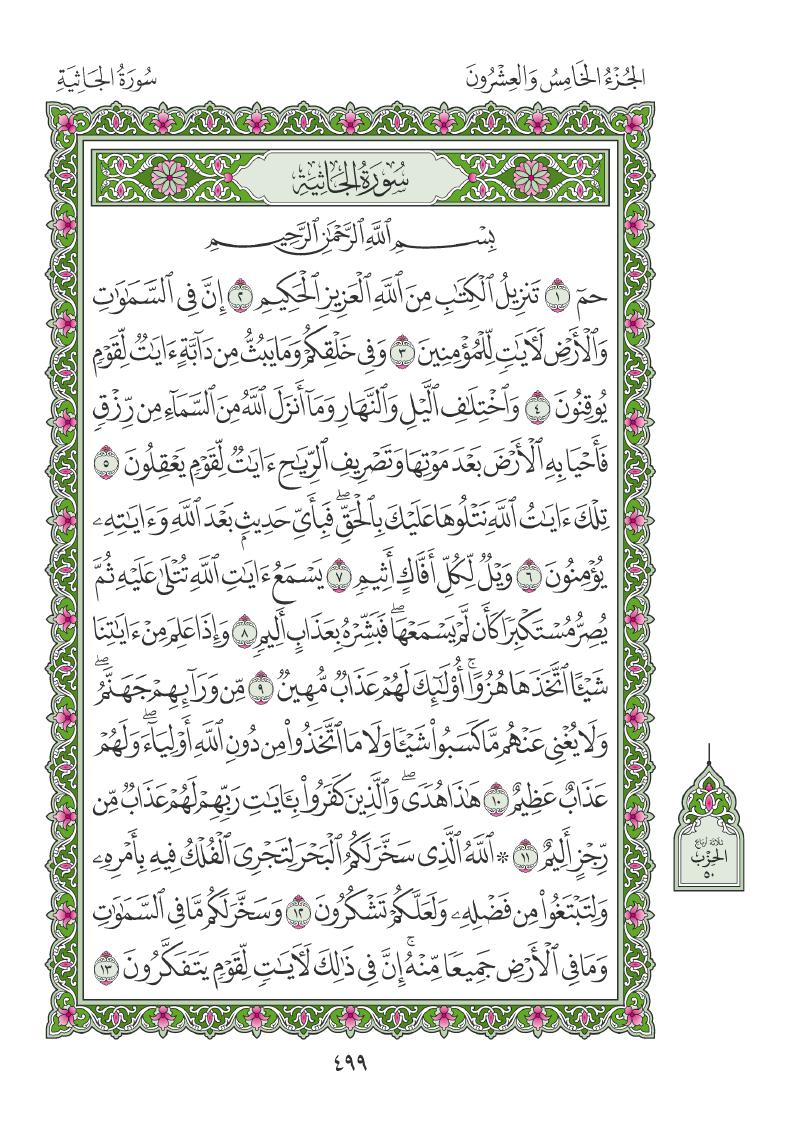 الجزء الخامس والعشرون
سورة الجاثية
سُورَةُ الجَاثِيَةِ
بِسۡمِ ٱللَّهِ ٱلرَّحۡمَٰنِ ٱلرَّحِيمِ
حمٓ ١ تَنزِيلُ ٱلۡكِتَٰبِ مِنَ ٱللَّهِ ٱلۡعَزِيزِ ٱلۡحَكِيمِ ٢ إِنَّ فِي ٱلسَّمَٰوَٰتِ
وَٱلۡأَرۡضِ لَأٓيَٰتٖ لِّلۡمُؤۡمِنِينَ ٣ وَفِي خَلۡقِكُمۡ وَمَا يَبُثُّ مِن دَآبَّةٍ ءَايَٰتٞ لِّقَوۡمٖ
يُوقِنُونَ ٤ وَٱخۡتِلَٰفِ ٱلَّيۡلِ وَٱلنَّهَارِ وَمَآ أَنزَلَ ٱللَّهُ مِنَ ٱلسَّمَآءِ مِن رِّزۡقٖ
فَأَحۡيَا بِهِ ٱلۡأَرۡضَ بَعۡدَ مَوۡتِهَا وَتَصۡرِيفِ ٱلرِّيَٰحِ ءَايَٰتٞ لِّقَوۡمٖ يَعۡقِلُونَ ٥
تِلۡكَ ءَايَٰتُ ٱللَّهِ نَتۡلُوهَا عَلَيۡكَ بِٱلۡحَقِّۖ فَبِأَيِّ حَدِيثِۭ بَعۡدَ ٱللَّهِ وَءَايَٰتِهِۦ
يُؤۡمِنُونَ ٦ وَيۡلٞ لِّكُلِّ أَفَّاكٍ أَثِيمٖ ٧ يَسۡمَعُ ءَايَٰتِ ٱللَّهِ تُتۡلَىٰ عَلَيۡهِ ثُمَّ
يُصِرُّ مُسۡتَكۡبِرٗا كَأَن لَّمۡ يَسۡمَعۡهَاۖ فَبَشِّرۡهُ بِعَذَابٍ أَلِيمٖ ٨ وَإِذَا عَلِمَ مِنۡ ءَايَٰتِنَا
شَيۡـًٔا ٱتَّخَذَهَا هُزُوًاۚ أُوْلَٰٓئِكَ لَهُمۡ عَذَابٞ مُّهِينٞ ٩ مِّن وَرَآئِهِمۡ جَهَنَّمُۖ
وَلَا يُغۡنِي عَنۡهُم مَّا كَسَبُواْ شَيۡـٔٗا وَلَا مَا ٱتَّخَذُواْ مِن دُونِ ٱللَّهِ أَوۡلِيَآءَۖ وَلَهُمۡ
عَذَابٌ عَظِيمٌ ١٠ هَٰذَا هُدٗىۖ وَٱلَّذِينَ كَفَرُواْ بِـَٔايَٰتِ رَبِّهِمۡ لَهُمۡ عَذَابٞ مِّن
رِّجۡزٍ أَلِيمٌ ١١ ۞ ٱللَّهُ ٱلَّذِي سَخَّرَ لَكُمُ ٱلۡبَحۡرَ لِتَجۡرِيَ ٱلۡفُلۡكُ فِيهِ بِأَمۡرِهِۦ
وَلِتَبۡتَغُواْ مِن فَضۡلِهِۦ وَلَعَلَّكُمۡ تَشۡكُرُونَ ١٢ وَسَخَّرَ لَكُم مَّا فِي ٱلسَّمَٰوَٰتِ
وَمَا فِي ٱلۡأَرۡضِ جَمِيعٗا مِّنۡهُۚ إِنَّ فِي ذَٰلِكَ لَأٓيَٰتٖ لِّقَوۡمٖ يَتَفَكَّرُونَ ١٣
ثلاثة أرباع
الحزب
٥٠
٤٩٩